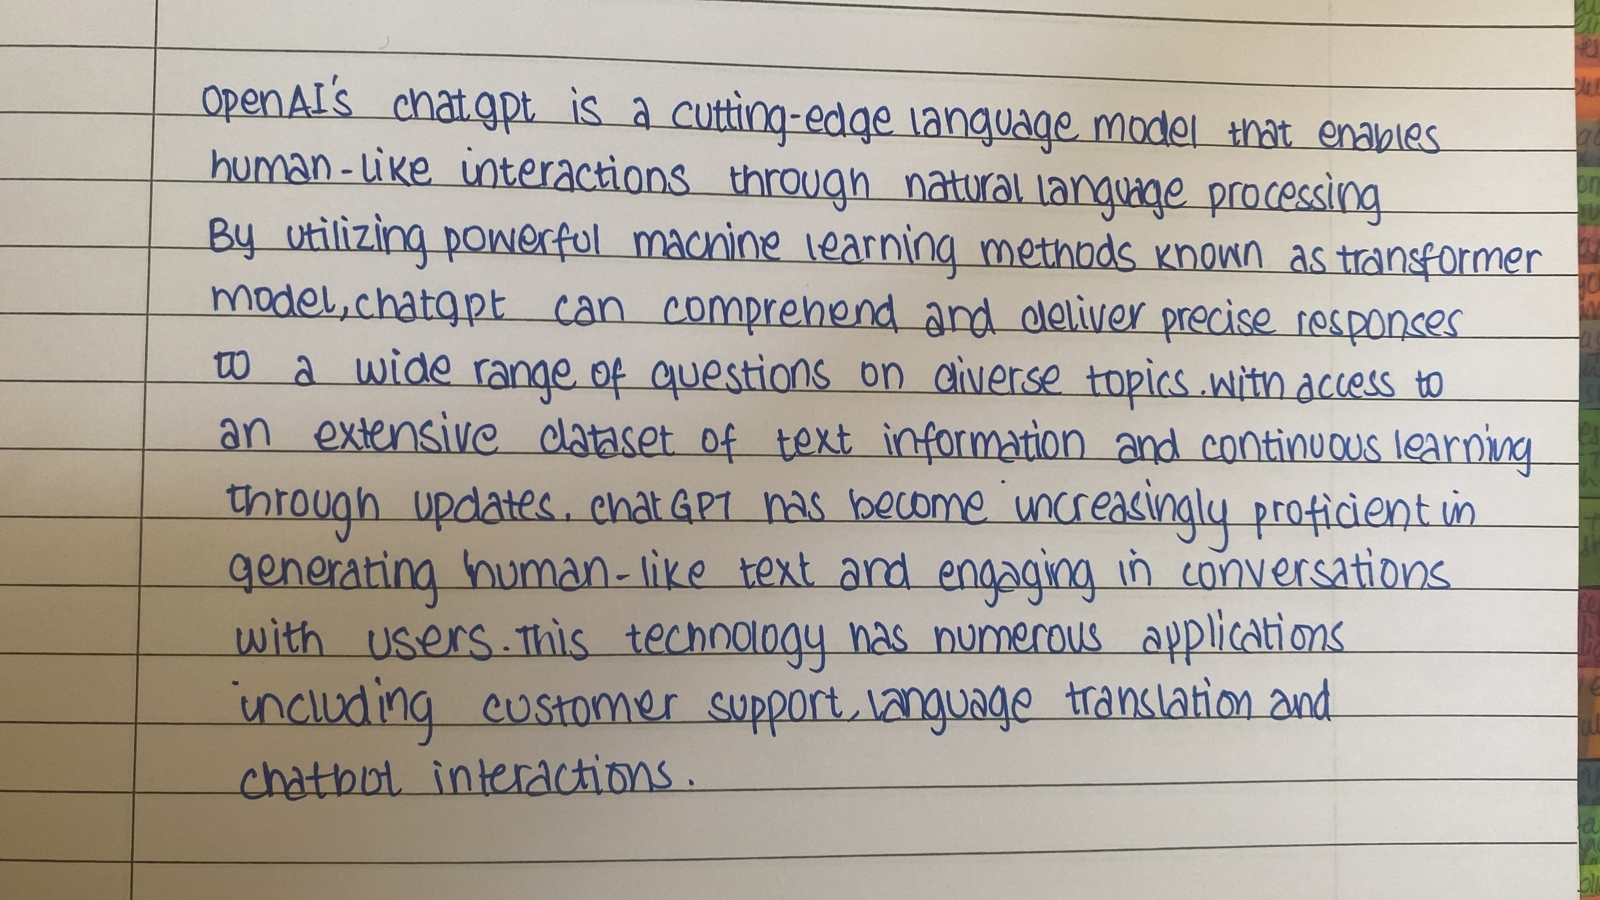 OpenAI's chatgpt is a cutting-edge language model that enables
human-like interactions through natural language processing
By utilizing powerful machine learning methods known as transformer
model, chatgpt can comprehend and deliver precise responses
to a wide range of questions on diverse topics. with access to
an extensive dataset of text information and continuous learning
through updates. chatGPT has become increasingly proficient in
generating human-like text and engaging in conversations
with users. This technology has numerous applications
including customer support, language translation and
chatbot interactions.